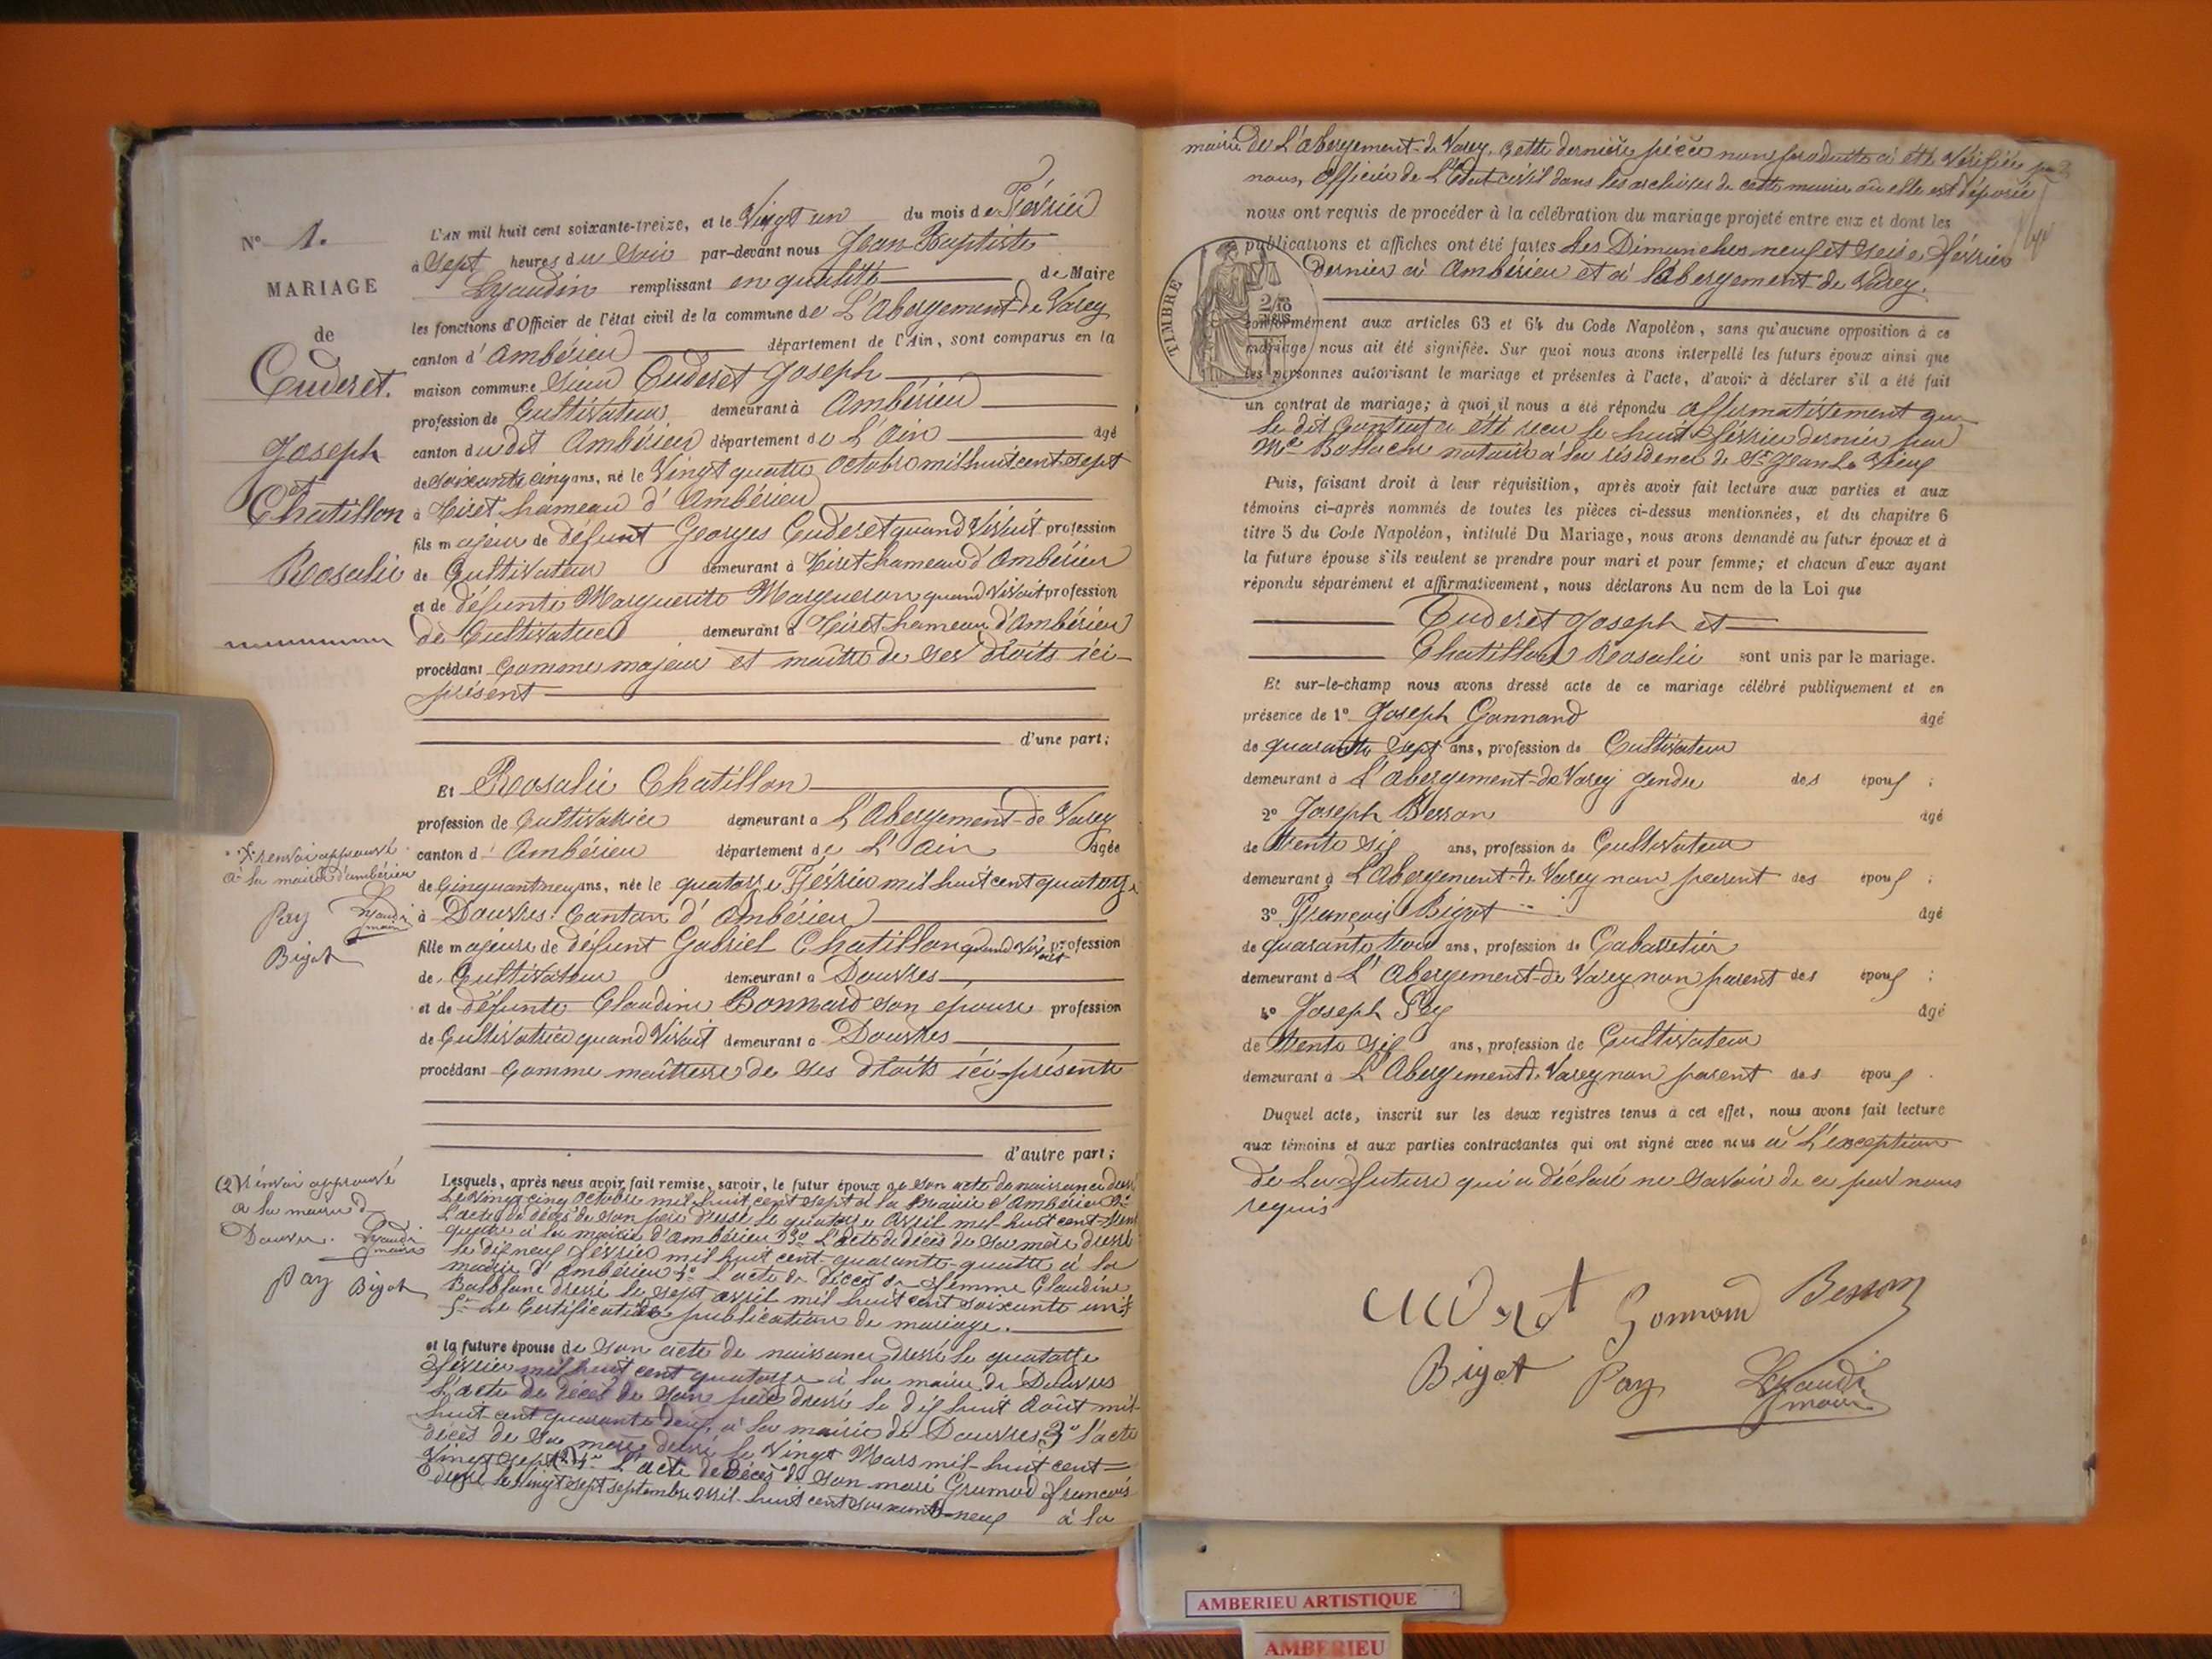 N° 1.
MARIAGE
de
Cuderet.
Joseph
et
Chatillon
Rosalie
L'AN mil huit cent soixante-treize, et le Vingt un du mois de Février
à Sept heures du Soir par-devant nous Jean Baptiste
Lyaudin remplissant en qualité de Maire
les fonctions d'Officier de l'état civil de la commune de L'Abergement-de Varey
canton d'Ambérieu département de l'Ain, sont comparus en la
maison commune Sieur Cuderet Joseph
profession de Cultivateur demeurant à Ambérieu
canton dudit Ambérieu département de L'Ain âgé
de Soixante cinq ans, né le Vingt quatre Octobre mil huit cent sept
à Tiret hameau d'Ambérieu
fils majeur de défunt Georges Cuderet quand Vivait profession
de Cultivateur demeurant à Tiret hameau d'Ambérieu
et de défunte Marguerite Margueron quand Vivait profession
de Cultivatrice demeurant à Tiret hameau d'Ambérieu
procédant Comme majeur et maître de ses droits ici-
présent
d'une part;
Et Rosalie Chatillon
profession de Cultivatrice demeurant à L'Abergement-de Varey
canton d'Ambérieu département de L'Ain âgée
de Cinquant neuf ans, née le quatorze Février mil huit cent quatorze
à Douvres. Canton d'Ambérieu
fille majeure de défunt Gabriel Chatillon quand vivait profession
de Cultivateur demeurant à Douvres
et de défunte Claudine Bonnard son épouse profession
de Cultivatrice quand Vivait demeurant à Douvres
procédant Comme maîtresse de ses droits ici-présente
d'autre part;
renvoi approuvé
à la mairie d'ambérieu
Pay Lyaudi maire
Bigot
(2) renvoi approuvé
à la mairie d
Douvres. Lyaudi maire
Pay Bigot
Lesquels, après nous avoir fait remise, savoir, le futur époux de son acte de naissance dressé
Le Vingt cinq Octobre mil huit cent sept à la Mairie d'Ambérieu 2°
L'acte de décès de son père dressé le quatorze Avril mil huit cent trente
quatre à la mairie d'Ambérieu 3° L'acte de décès de sa mère dressé
le dix neuf février mil huit cent quarante-quatre à la
mairie d'Ambérieu 4° L'acte de décès de femme Claudine
Balblanc dressé le sept avril mil huit cent soixante un
5° Le Certificat de publication de mariage.
et la future épouse de son acte de naissance dressé le quatorze
février mil huit cent quatorze à la mairie de Douvres
L'acte de décès de son père dressé le dix huit Août mil
huit cent quarante deux, à la mairie de Douvres 3° l'acte
décès de sa mère dressé le Vingt Mars mil-huit cent
Vingt sept (2) 4° L'acte de Décès de son mari Grumod François
dressé le Vingt sept septembre mil huit cent soixante-neuf à la
mairie de L'Abergement-de Varey. Cette dernière pièce non produite a été Vérifiée par
nous, Officier de L'Etat-civil dans les archives de cette mairie où elle est déposée
nous ont requis de procéder à la célébration du mariage projeté entre eux et dont les
publications et affiches ont été faites Les Dimanches neuf et seize février
dernier à Ambérieu et à l'Abergement-de Varey.
TIMBRE
conformément aux articles 63 et 64 du Code Napoléon, sans qu'aucune opposition à ce
mariage nous ait été signifiée. Sur quoi nous avons interpellé les futurs époux ainsi que
les personnes autorisant le mariage et présentes à l'acte, d'avoir à déclarer s'il a été fait
un contrat de mariage; à quoi il nous a été répondu affirmativement que
Le dit Contrat a été reçu le huit février dernier par
Me notaire à la résidence de St Jean Le Vieux
Puis, faisant droit à leur réquisition, après avoir fait lecture aux parties et aux
témoins ci-après nommés de toutes les pièces ci-dessus mentionnées, et du chapitre 6
titre 5 du Code Napoléon, intitulé Du Mariage, nous avons demandé au futur époux et à
la future épouse s'ils veulent se prendre pour mari et pour femme; et chacun d'eux ayant
répondu séparément et affirmativement, nous déclarons Au nom de la Loi que
Cuderet Joseph et
Chatillon Rosalie sont unis par le mariage.
Et sur-le-champ nous avons dressé acte de ce mariage célébré publiquement et en
présence de 1° Joseph Gonnand âgé
de quarante Sept ans, profession de Cultivateur
demeurant à L'Abergement-de Varey gendre des époux ;
2° Joseph Besson âgé
de trente Six ans, profession de Cultivateur
demeurant à L'Abergement-de Varey non parent des époux ;
3° François Bigot âgé
de quarante trois ans, profession de Cabaretier
demeurant à L'Abergement-de Varey non parent des époux ;
4° Joseph Pay âgé
de trente six ans, profession de Cultivateur
demeurant à L'Abergement de Varey non parent des époux .
Duquel acte, inscrit sur les deux registres tenus à cet effet, nous avons fait lecture
aux témoins et aux parties contractantes qui ont signé avec nous à L'exception
de La future qui a déclaré ne savoir de ce par nous
requis
Cuderet Gonnand Besson
Bigot Pay Lyaudi
maire
AMBERIEU ARTISTIQUE
AMBERIEU